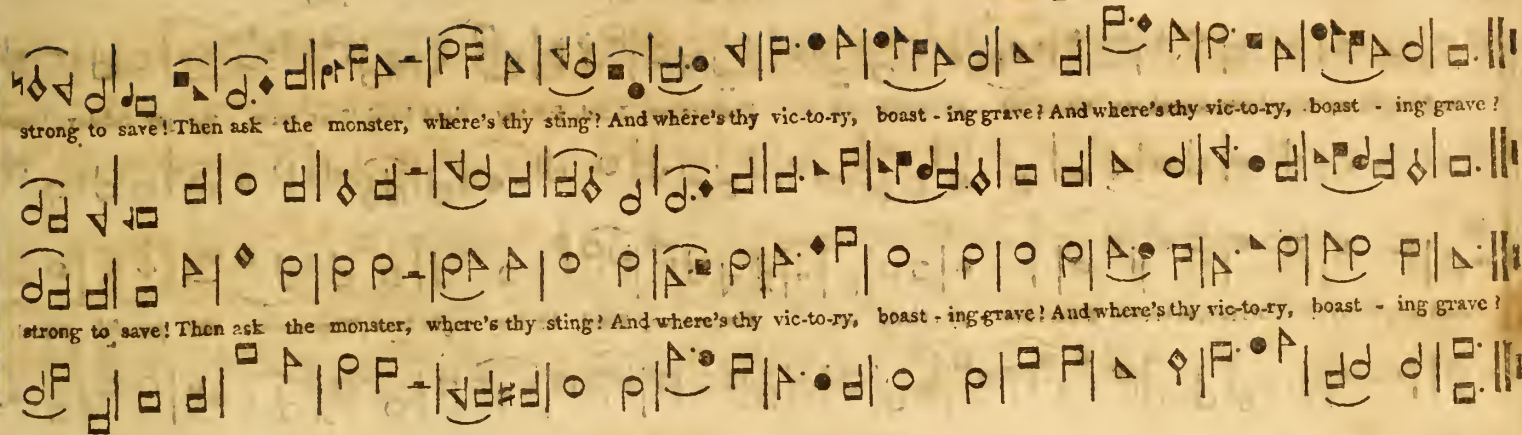 strong to save! Then ask the monster, where's thy sting? And where's thy vic-to-ry, boast - ing grave? And where's thy vic-to-ry, boast - ing grave?
strong to save! Then ask the monster, where's thy sting? And where's thy vic-to-ry, boast - ing grave! And where's thy vic-to-ry, boast - ing grave?